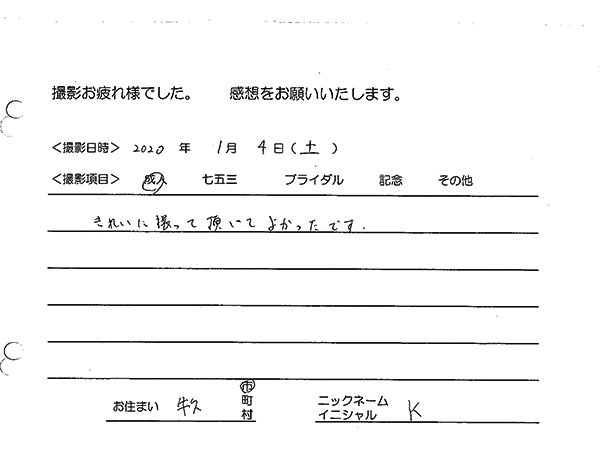 撮影お疲れ様でした。 感想をお願いいたします。
<撮影日時> 2020 年 1月 4日(土)
<撮影項目> 成人 七五三 ブライダル 記念 その他
きれいに撮って頂いてよかったです.
お住まい 牛久 市町村
ニックネーム
イニシャル K